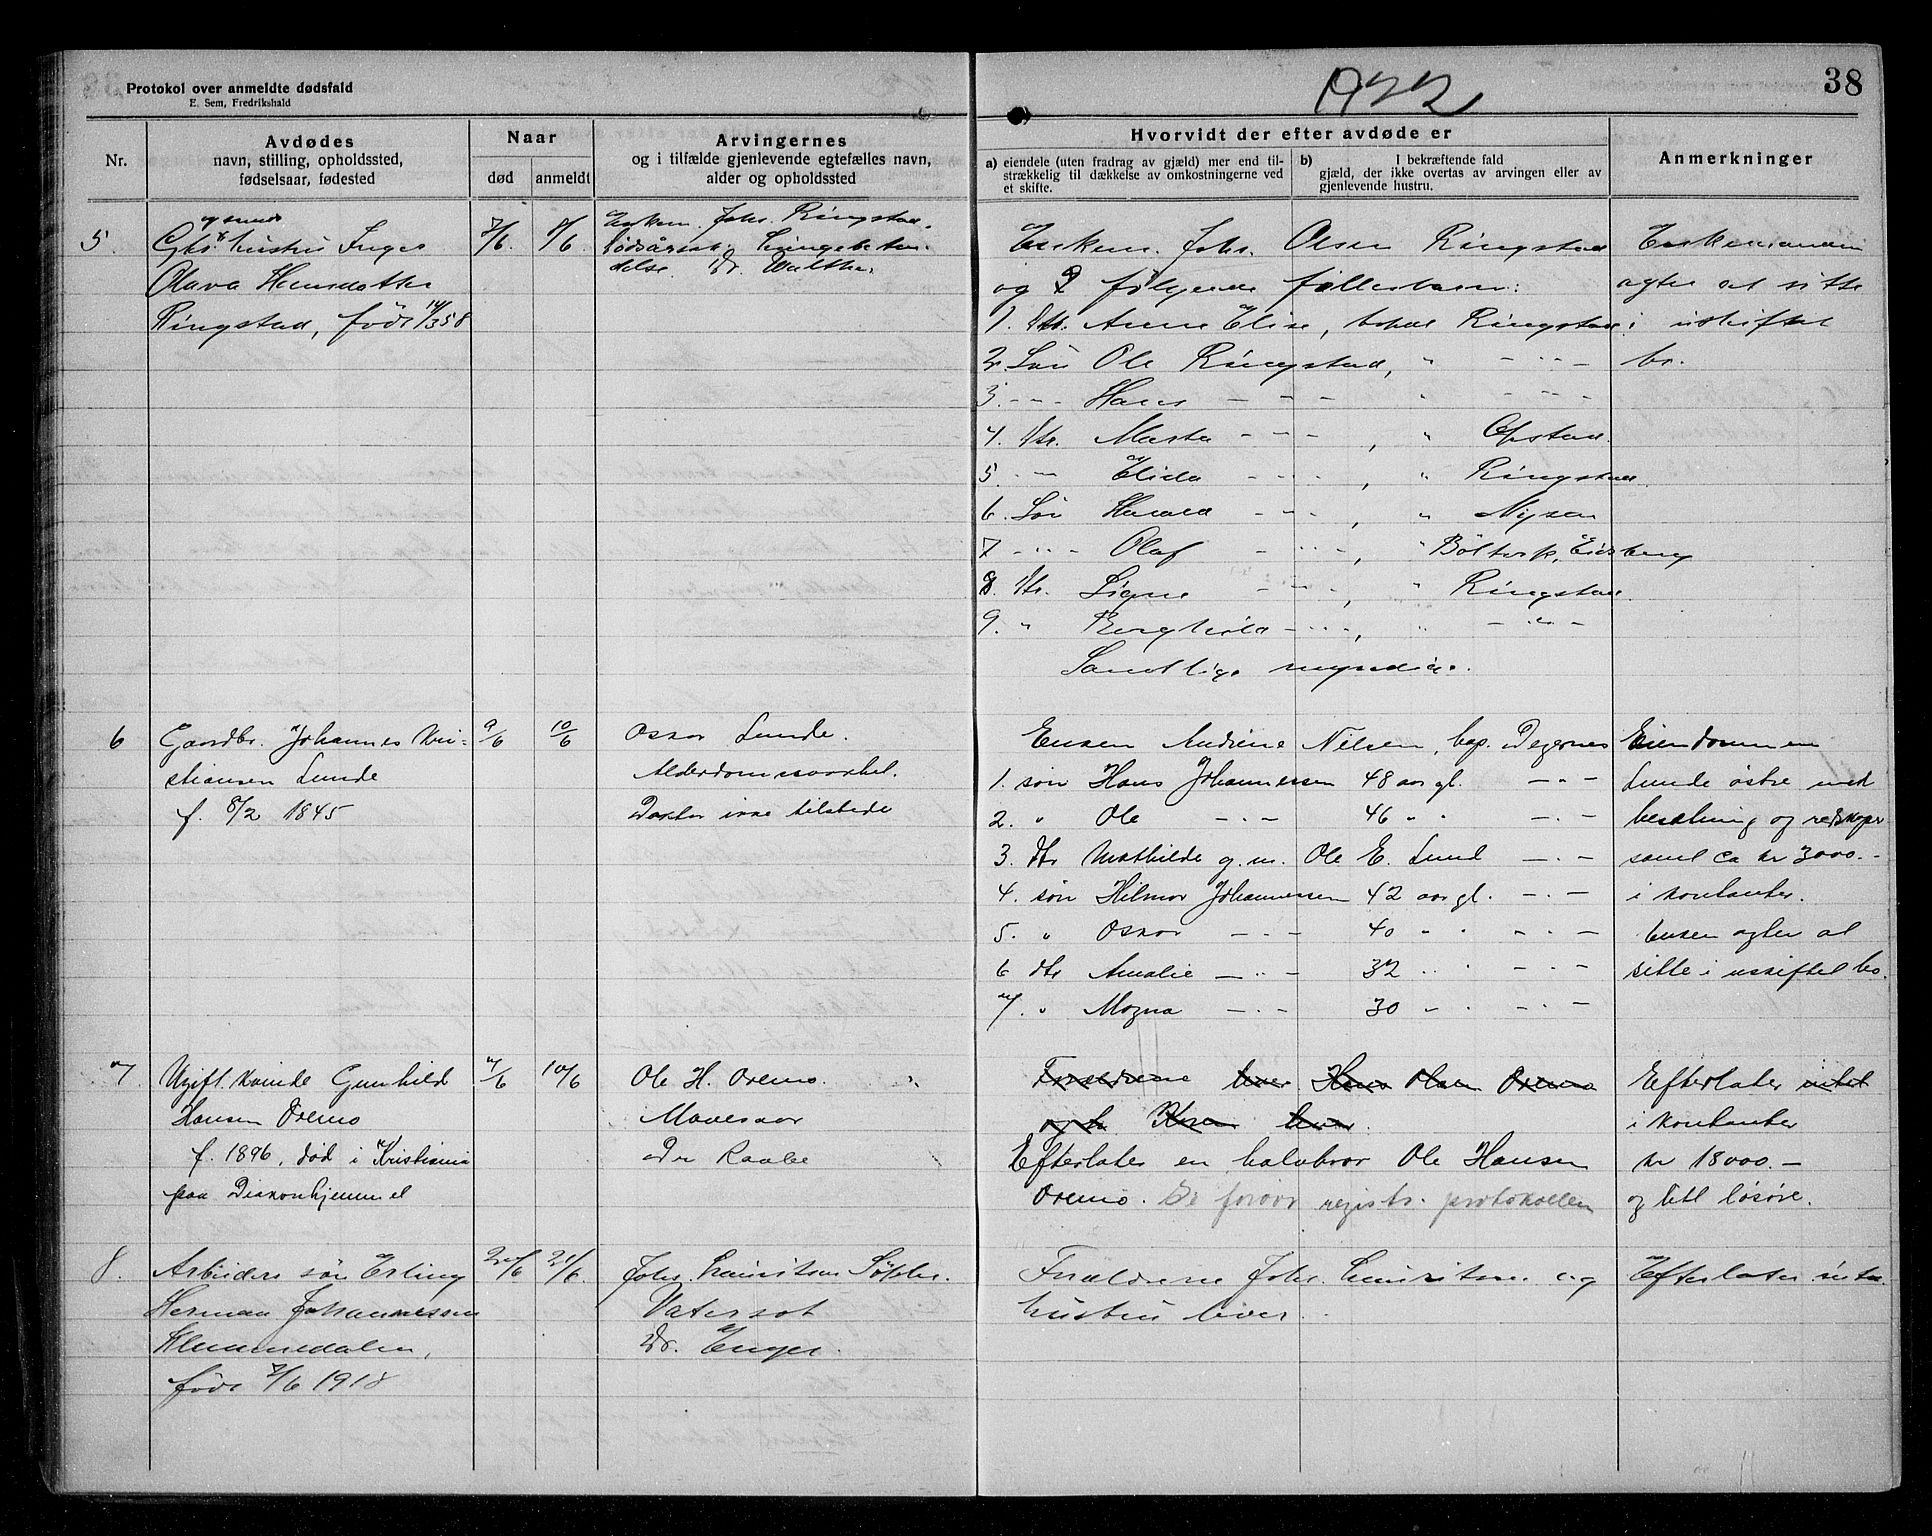 Protokol over anmeldte dødsfald
E. Sem, Fredrikshald
1922
38
Nr.
Avdødes
navn, stilling, opholdssted,
fødselsaar, fødested
Naar
død
anmeldt
Arvingernes
og i tilfælde gjenlevende egtefælles navn,
alder og opholdssted
Hvorvidt der efter avdøde er
a) eiendele (uten fradrag av gjæld) mer end til-
strækkelig til dækkelse av omkostningerne ved
et skifte.
b) I bekræftende fald
gjæld, der ikke overtas av arvingen eller av
gjenlevende hustru.
Anmerkninger
5.
hustru Inga
Olava Hansdatter
Ringstad, født 14/3 58
7/6
8/6
Enkem. Johs. Ringstad.
Dødsårsak:
Dr. Walther
Enkem. Johs. Olsen Ringstad
og 9 følgende fællesbarn:
1. Dtr. Anne Elise, bopæl Ringstad
2. Søn Ole Ringstad, " - " -
3. - - - Hans - - - " - " -
4. Dtr. Marta - - - , " Opstad.
5. - - Elida - - - , " Ringstad.
6. Søn Harald - - - , " Nysen
7 - - - Olaf - - - , " Eidsberg
8. Dtr. Signe - - - , " Ringstad.
9. " Borghild - - - , " - " -
Samtlige myndige.
Enkemanden
agter at sitte
i uskiftet
bo.
6
Gaardbr. Johannes Kri-
stiansen Lunde
f. 8/2 1845
9/6
10/6
Oskar Lunde.
Alderdomssvakhet.
Doktor ikke tilstede
Enken Andrine Nilsen, bop. Degernes
1. søn Hans Johannessen 48 aar gl. - " -
2. " Ole - " - 46 " " - " -
3. dtr Mathilde g.m. Ole E. Lund - " -
4. søn Hilmar Johannessen 42 aar gl. - " -
5. " Oskar - " - 40 " " - " -
6 dtr Amalie - " - 32 " " - " -
7. " Magna - " - 30 " " - " -
Eiendommen
Lunde østre med
besætning og redskaper
samt ca kr 3000.-
i kontanter.
Enken agter at
sitte i uskiftet bo.
7.
Ugift kvinde Gunhild
Hansen Oremo
f. 1896, død i Kristiania
paa Diakonhjemmet
7/6
10/6
Ole H. Oremo.
Mavesaar
Dr Raabe
Forældrene lever Hans Olsen Oremo
lever.
Efterlater en halvbror Ole Hansen
Oremo. Se forøvr registr. protokollen
Efterlater intet
i kontanter
kr 18000.-
og litt løsøre.
8.
Arbeiders søn Erling
Herman Johannessen
Klemmedalen,
født 7/6 1918
20/6
21/6
Johs. Lauritsen
Vatersot
Dr. Enger.
Forældrene Johs. Lauritsen og
hustru lever.
Efterlater intet